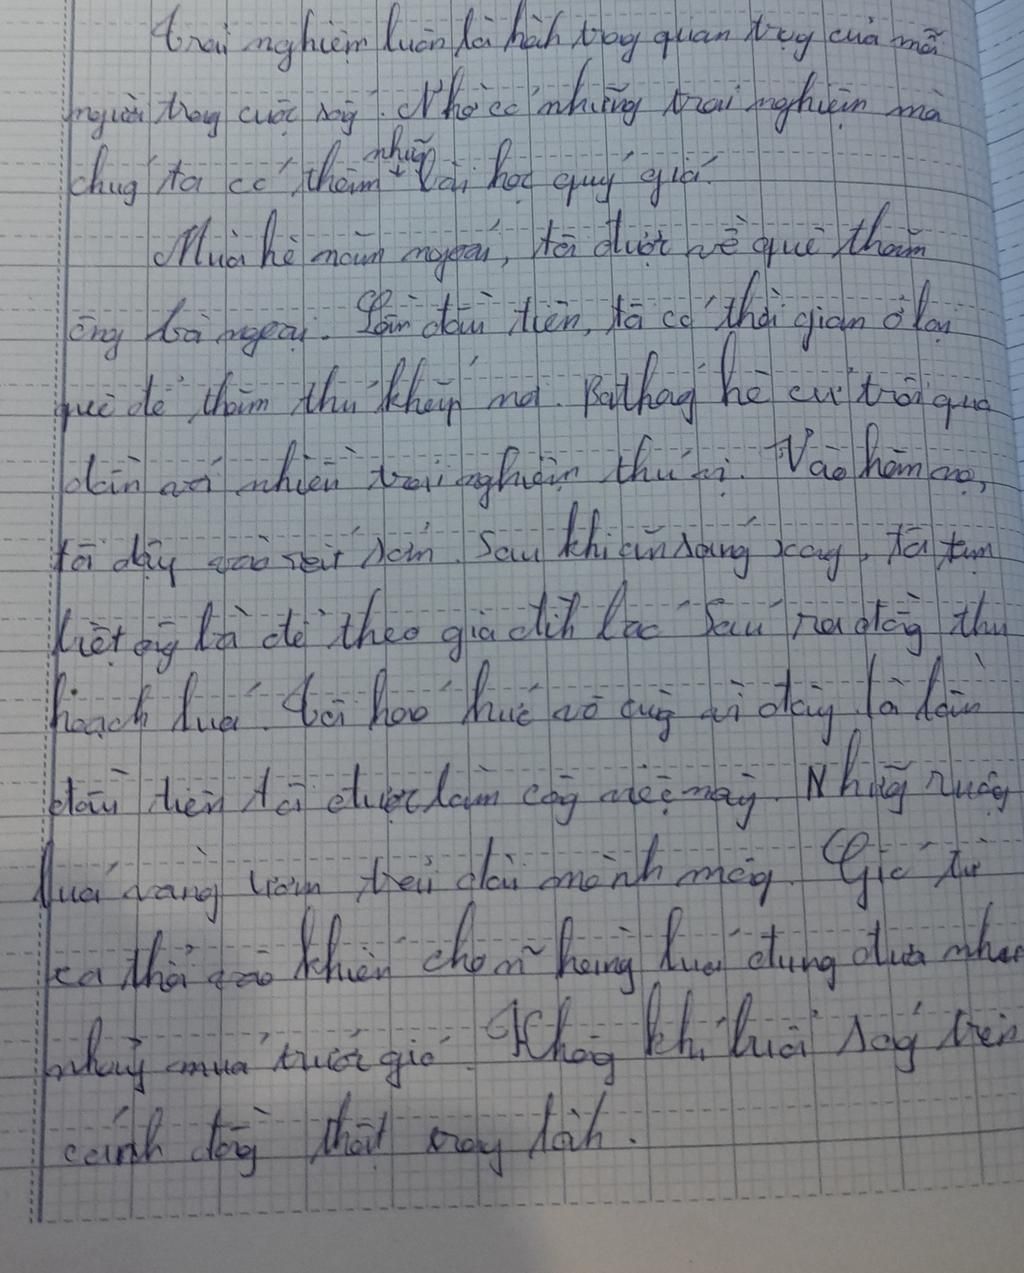 trải nghiệm luôn là hành trog quan trọg của mỗi
người trog cuộc sốg. Nhờ có những trải nghiệm mà
chúg ta có thêm nhiều bài học quý giá.
Mùa hè năm ngoái, tôi được về quê thăm
ông bà ngoại. Lần đầu tiên, tôi có thời gian ở lại
quê để thăm thú khắp nơi. Ba thág hè cứ trôi qua
dần với nhiều trải nghiệm thú vị. Vào hôm nọ,
tôi dậy sớm. Sau khi ăn sáng xog, tôi tạm
biệt ôg bà để theo gia đìh bác Sáu ra đồg thu
hoạch lúa. tôi háo hức vô cùg vì đây là lần
đầu tiên tôi được làm côg việc này. Nhữg ruộg
lúa vàng ươm trải dài mênh môg. Gió từ
xa thổi vào khiến cho hàng lúa đung đưa như
nhảy múa trước gió. Khôg khí buổi ság trên
cánh đồg thật trog làh.